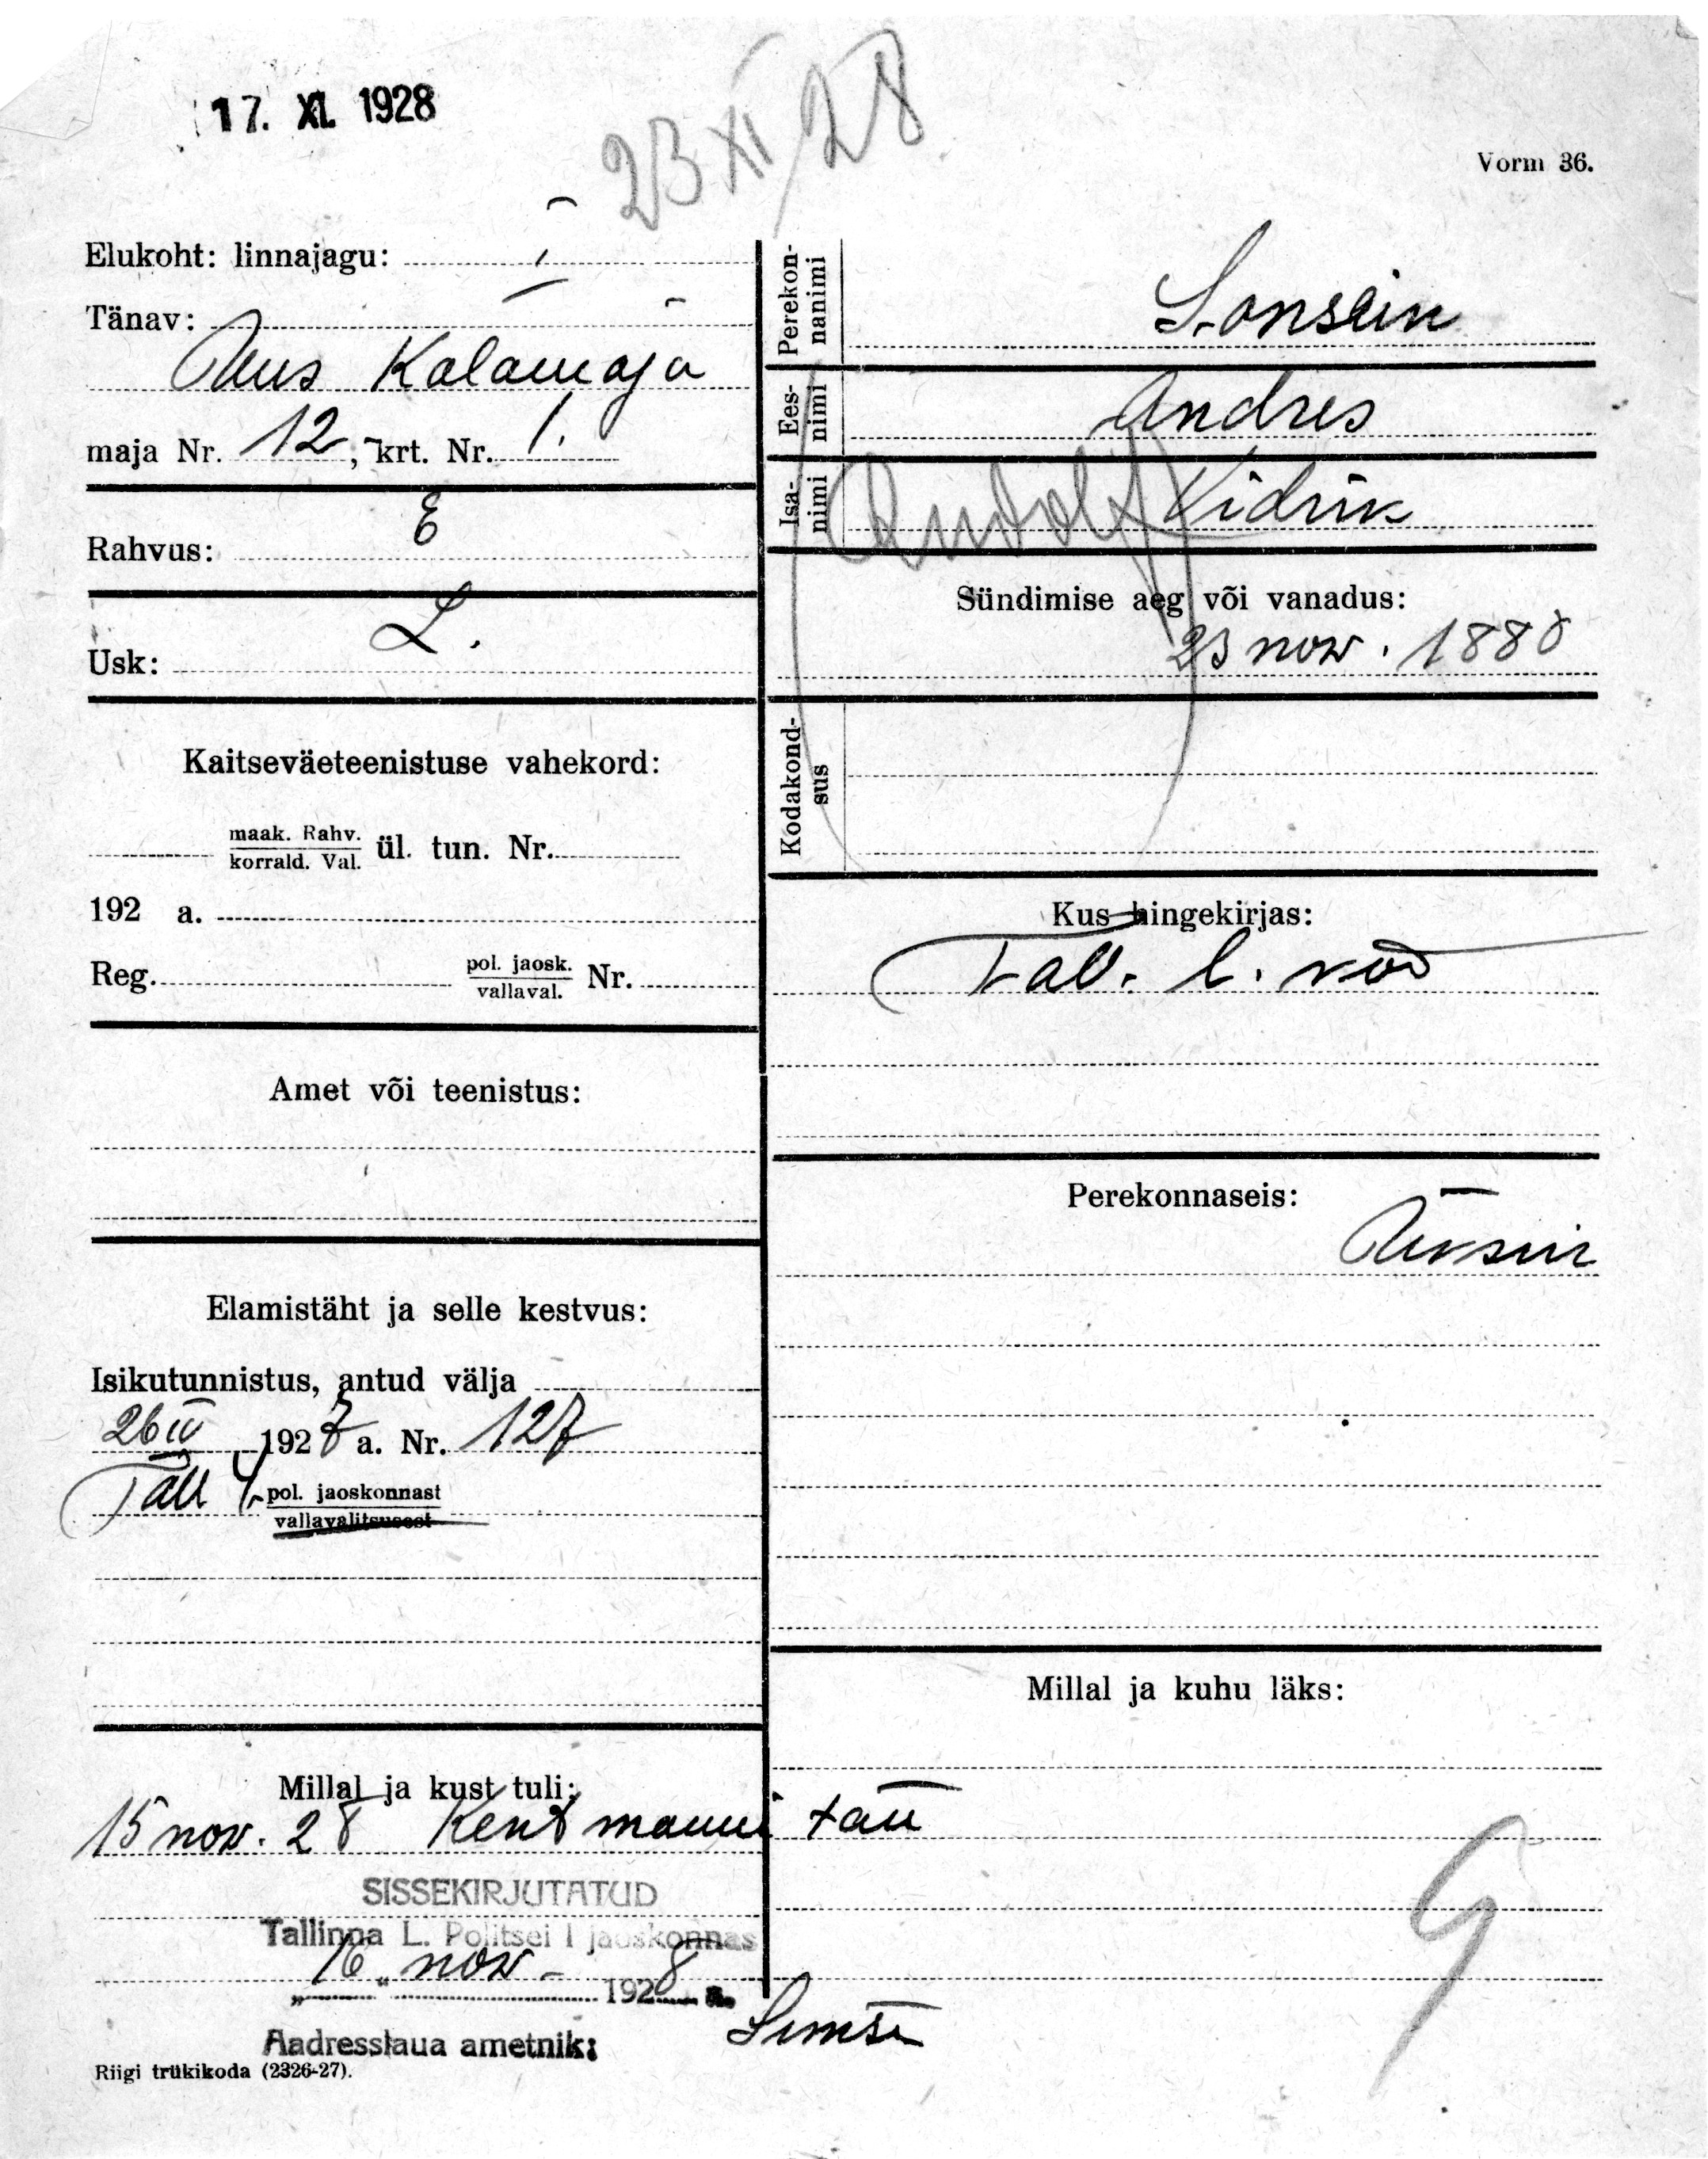 17. XI. 1928
23 XI 28
Vorm 36.
Elukoht: linnajagu: I
Tänav:
Uus Kalamaja
maja Nr. 12, krt. Nr. 1.
Rahvus: E
Usk: L.
Kaitseväeteenistuse vahekord:
maak. Rahv.
korrald. Val. ül. tun. Nr.
192 a.
Reg. pol. jaosk.
vallaval. Nr.
Amet või teenistus:
Elamistäht ja selle kestvus:
Isikutunnistus, antud välja
26 IV 1927 a. Nr. 127
Tall pol. jaoskonnast
vallavalitsusest
Millal ja kust tuli:
15 nov. 28 Kentmanni tän
SISSEKIRJUTATUD
Tallinna L. Politsei I jaoskonnas
„16" nov 1928 a.
Aadresslaua ametnik:
Riigi trükikoda (2326-27).
Perekonnanimi
Eesnimi Andres
Isanimi Kidrik
Rudolf
Sündimise aeg või vanadus:
23 nov. 1888
Kodakondsus
Kus hingekirjas:
Tall. l.
Perekonnaseis:
Üksik
Millal ja kuhu läks: